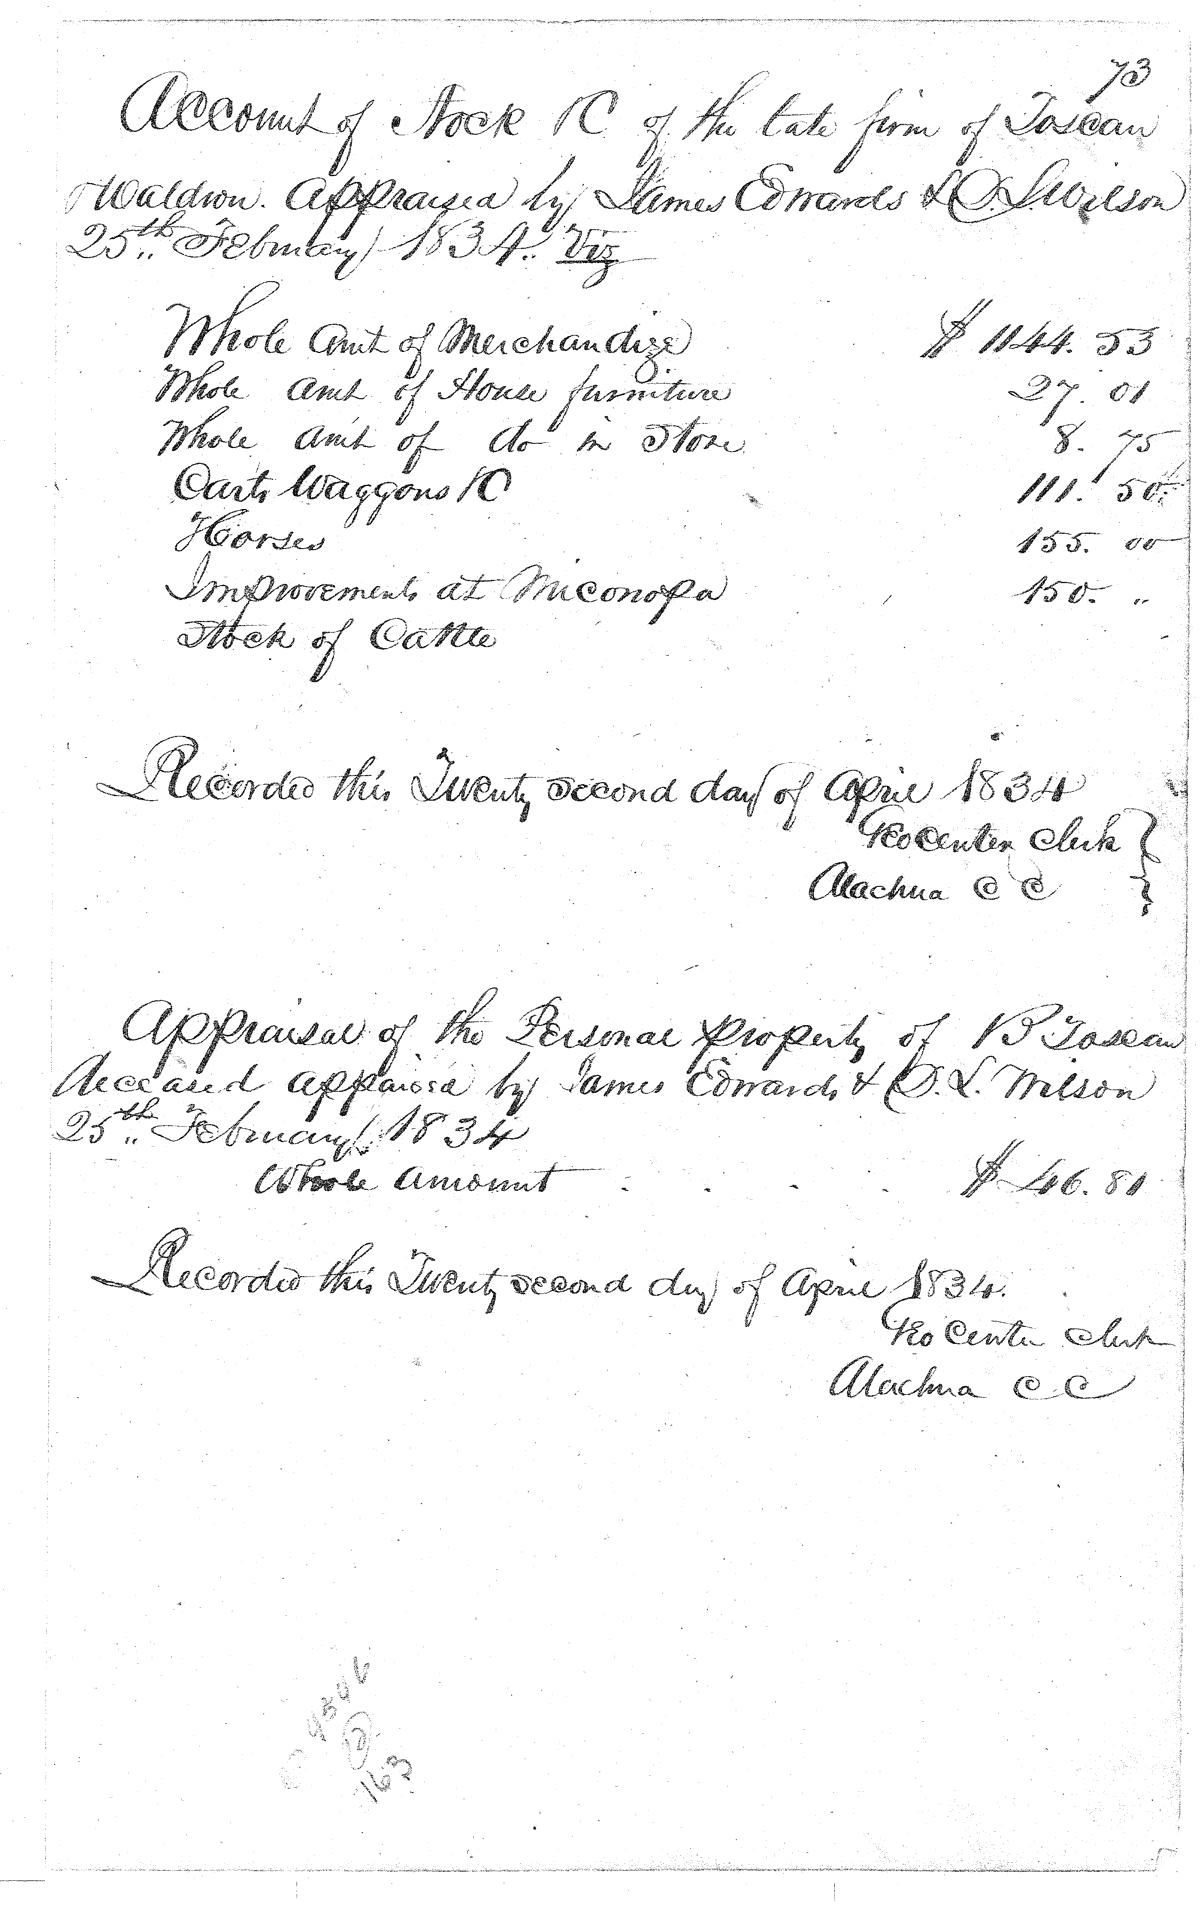 73
Account of Stock &C of the late firm of Toscan
Waldron. Appraised by James Edwards & D. L. Wilson
25th February 1834. Viz
Whole Amt of Merchandize $ 1144. 53
Whole amt of House furniture 27. 01
Whole amt of do in Store 8. 75
Carts Waggons &C 111. 50
Horses 155. 00
Improvements at Miconopa 150. "
Stock of Cattle
Recorded this Twenty second day of April 1834
Geo Center Clerk
Alachua C C
Appraisal of the Personal Property of B Toscan
deceased appraised by James Edwards & D. L. Wilson
25th February 1834
Whole amount . . . . $ 46. 81
Recorded this Twenty second day of April 1834.
Geo Center Clerk
Alachua C C
163